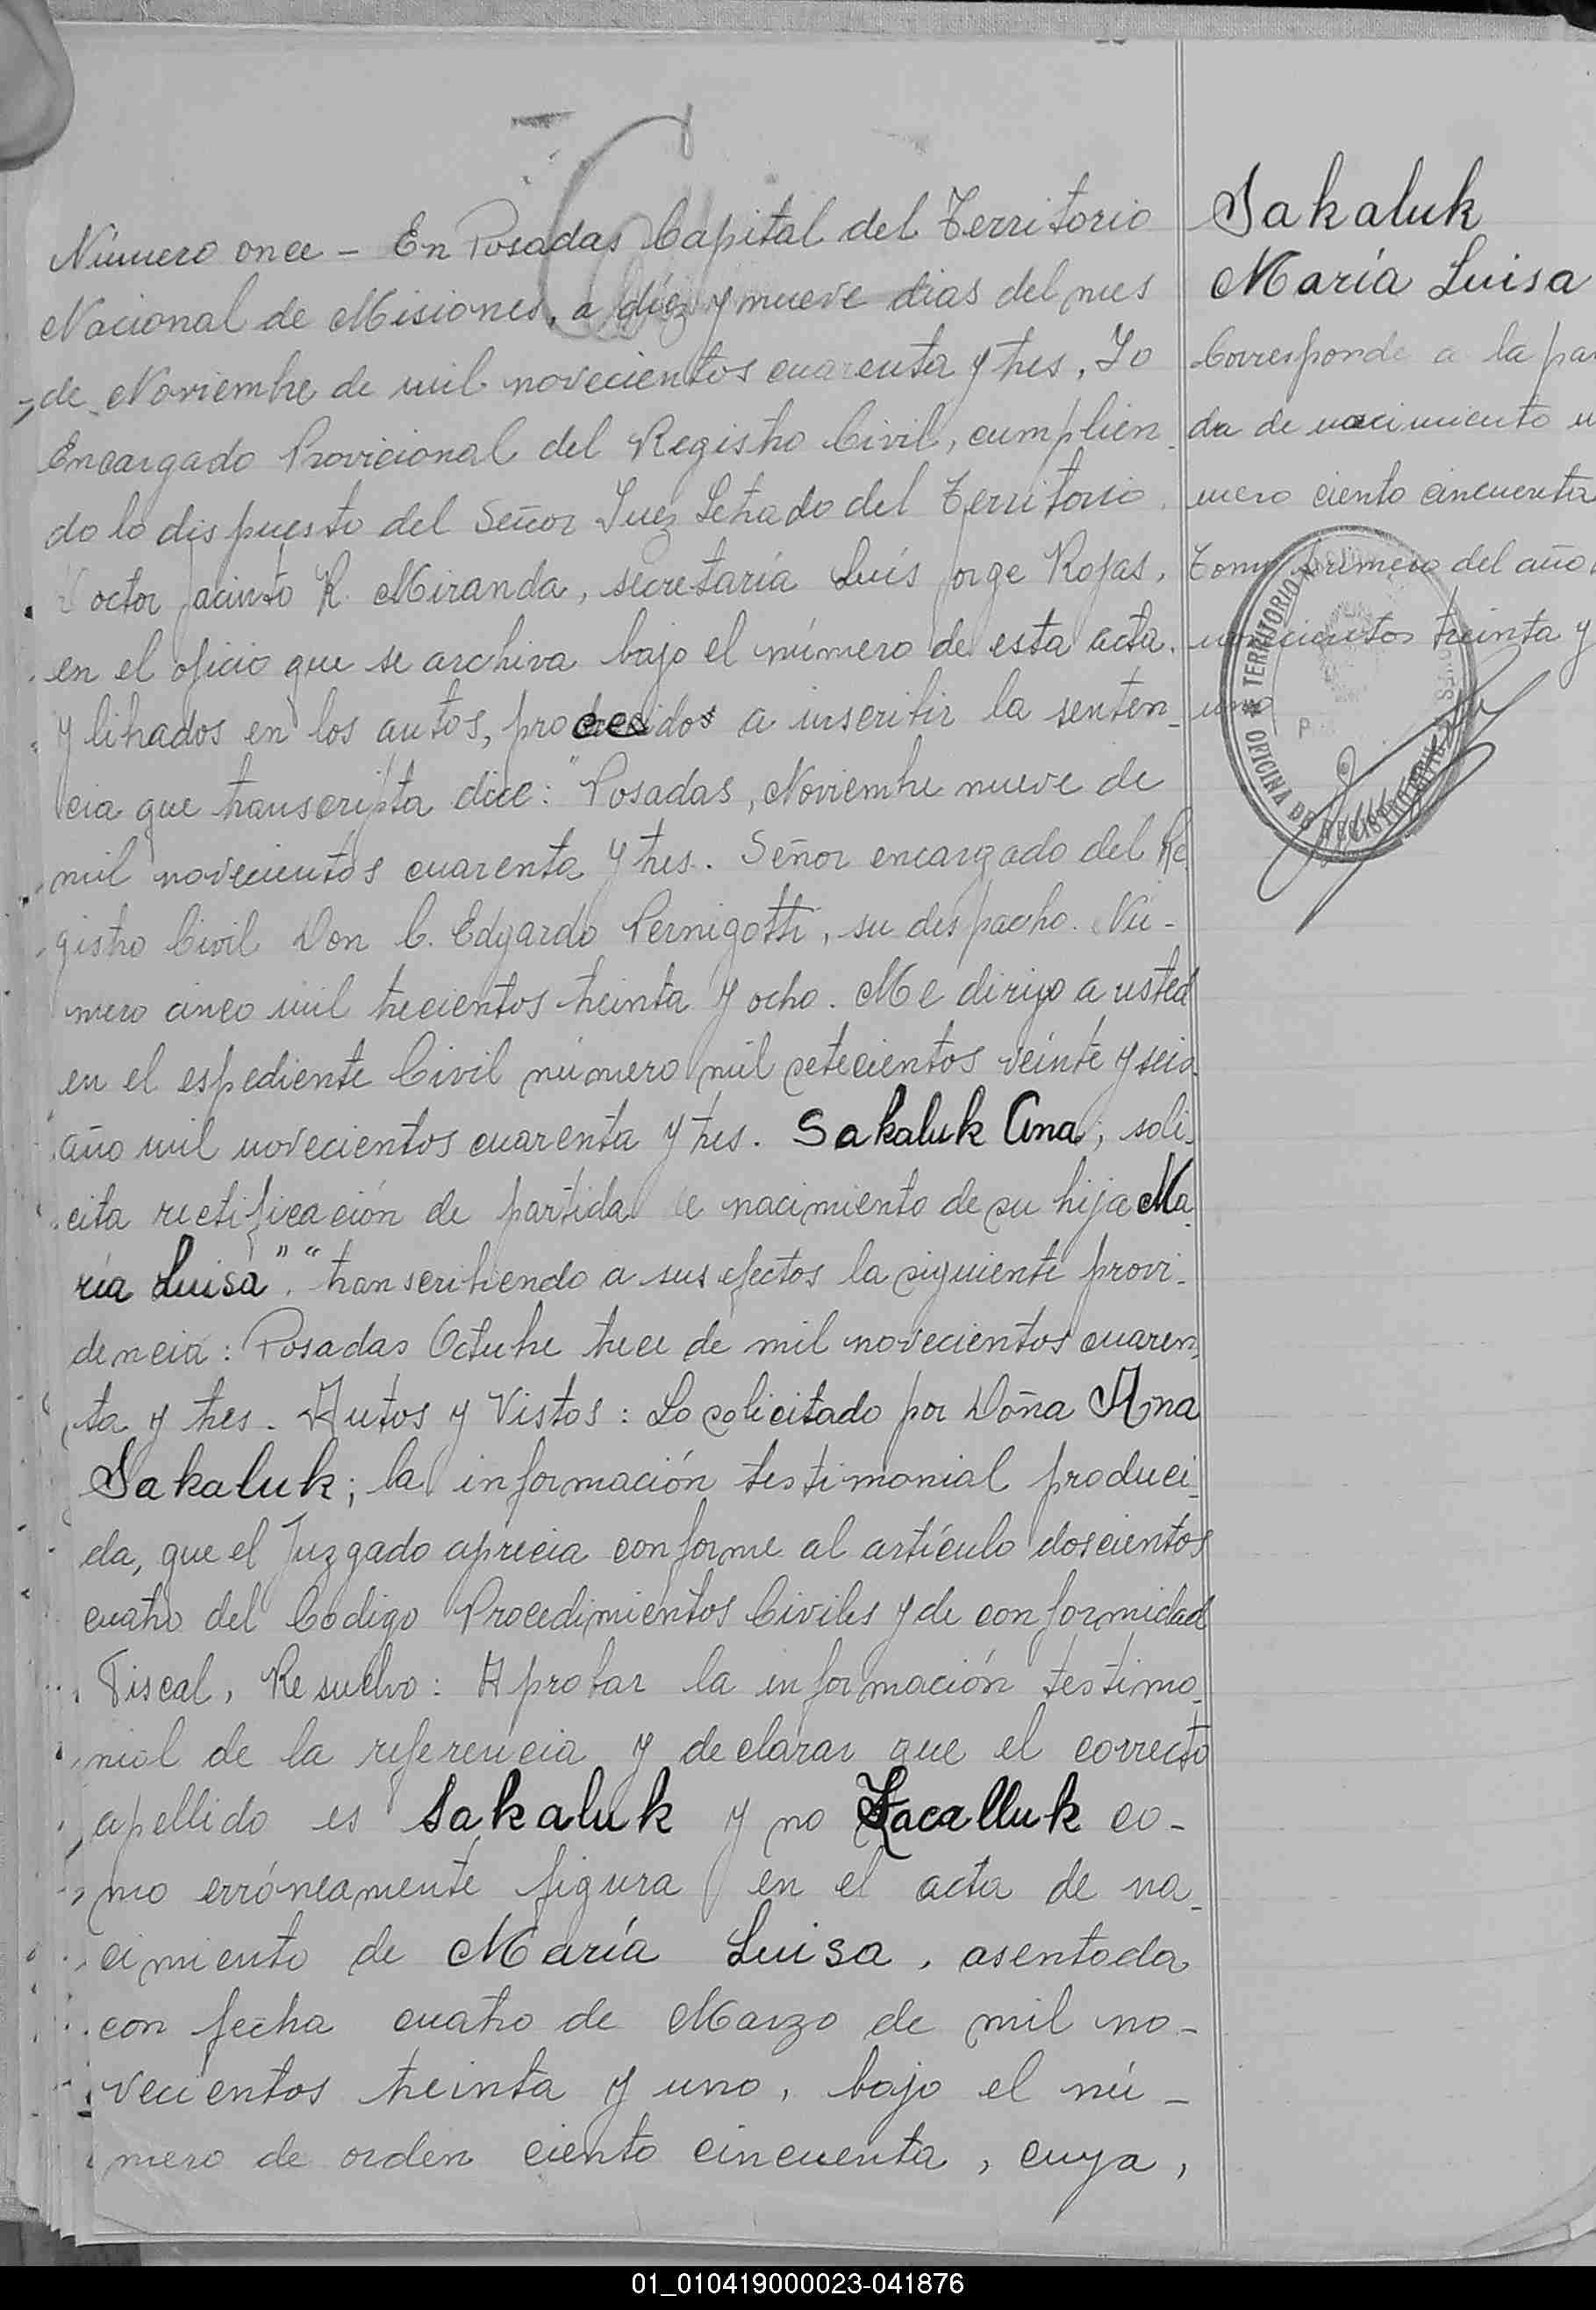 Número once - En Posadas Capital del Territorio
Nacional de Misiones, a diez y nueve dias del mes
de Noviembre de mil novecientos cuarenta y tres, Yo
Encargado Provicional del Registro Civil, cumplien_
do lo dispuesto del Señor Juez Letrado del Territorio
Doctor Jacinto R. Miranda, secretaría Luís Jorge Rojas,
en el oficio que se archiva bajo el número de esta acta.
y librados en los autos, procedidos a inscribir la senten_
cia que transcripta dice: "Posadas, Noviembre nueve de
mil novecientos cuarenta y tres. Señor encargado del Re
gistro Civil Don C. Edgardo Pernigotti, su despacho. Nú-
mero cinco mil trecientos treinta y ocho. Me dirijo a usted
en el espediente Civil número mil setecientos veinte y seis
año mil novecientos cuarenta y tres. Sakaluk Ana; soli_
cita rectificación de partida de nacimiento de su hija Ma_
ría Luisa". "transcribiendo a sus efectos la siguiente provi_
dencia: Posadas Octubre trece de mil novecientos cuaren_
ta y tres. Autos y Vistos: Lo solicitado por Doña Ana
Sakaluk; la información testimonial produci_
da, que el Juzgado aprecia conforme al artículo doscientos
cuatro del Codigo Procedimientos Civiles y de conformidad
Fiscal, Resuelvo: Aprobar la información testimo_
nial de la referencia y declarar que el correcto
apellido es Sakaluk y no Zacalluk co-
mo erróneamente figura en el acta de na_
cimiento de María Luisa, asentada
con fecha cuatro de Marzo de mil no-
vecientos treinta y uno, bajo el nú-
mero de orden ciento cincuenta, cuya,
Sakaluk
María Luisa
Corresponde a la par
da de nacimiento n
mero ciento cincuenta
Tomo primero del año
novecientos treinta y
uno
OFICINA DE REGISTRO TERRITORIO
01_010419000023-041876